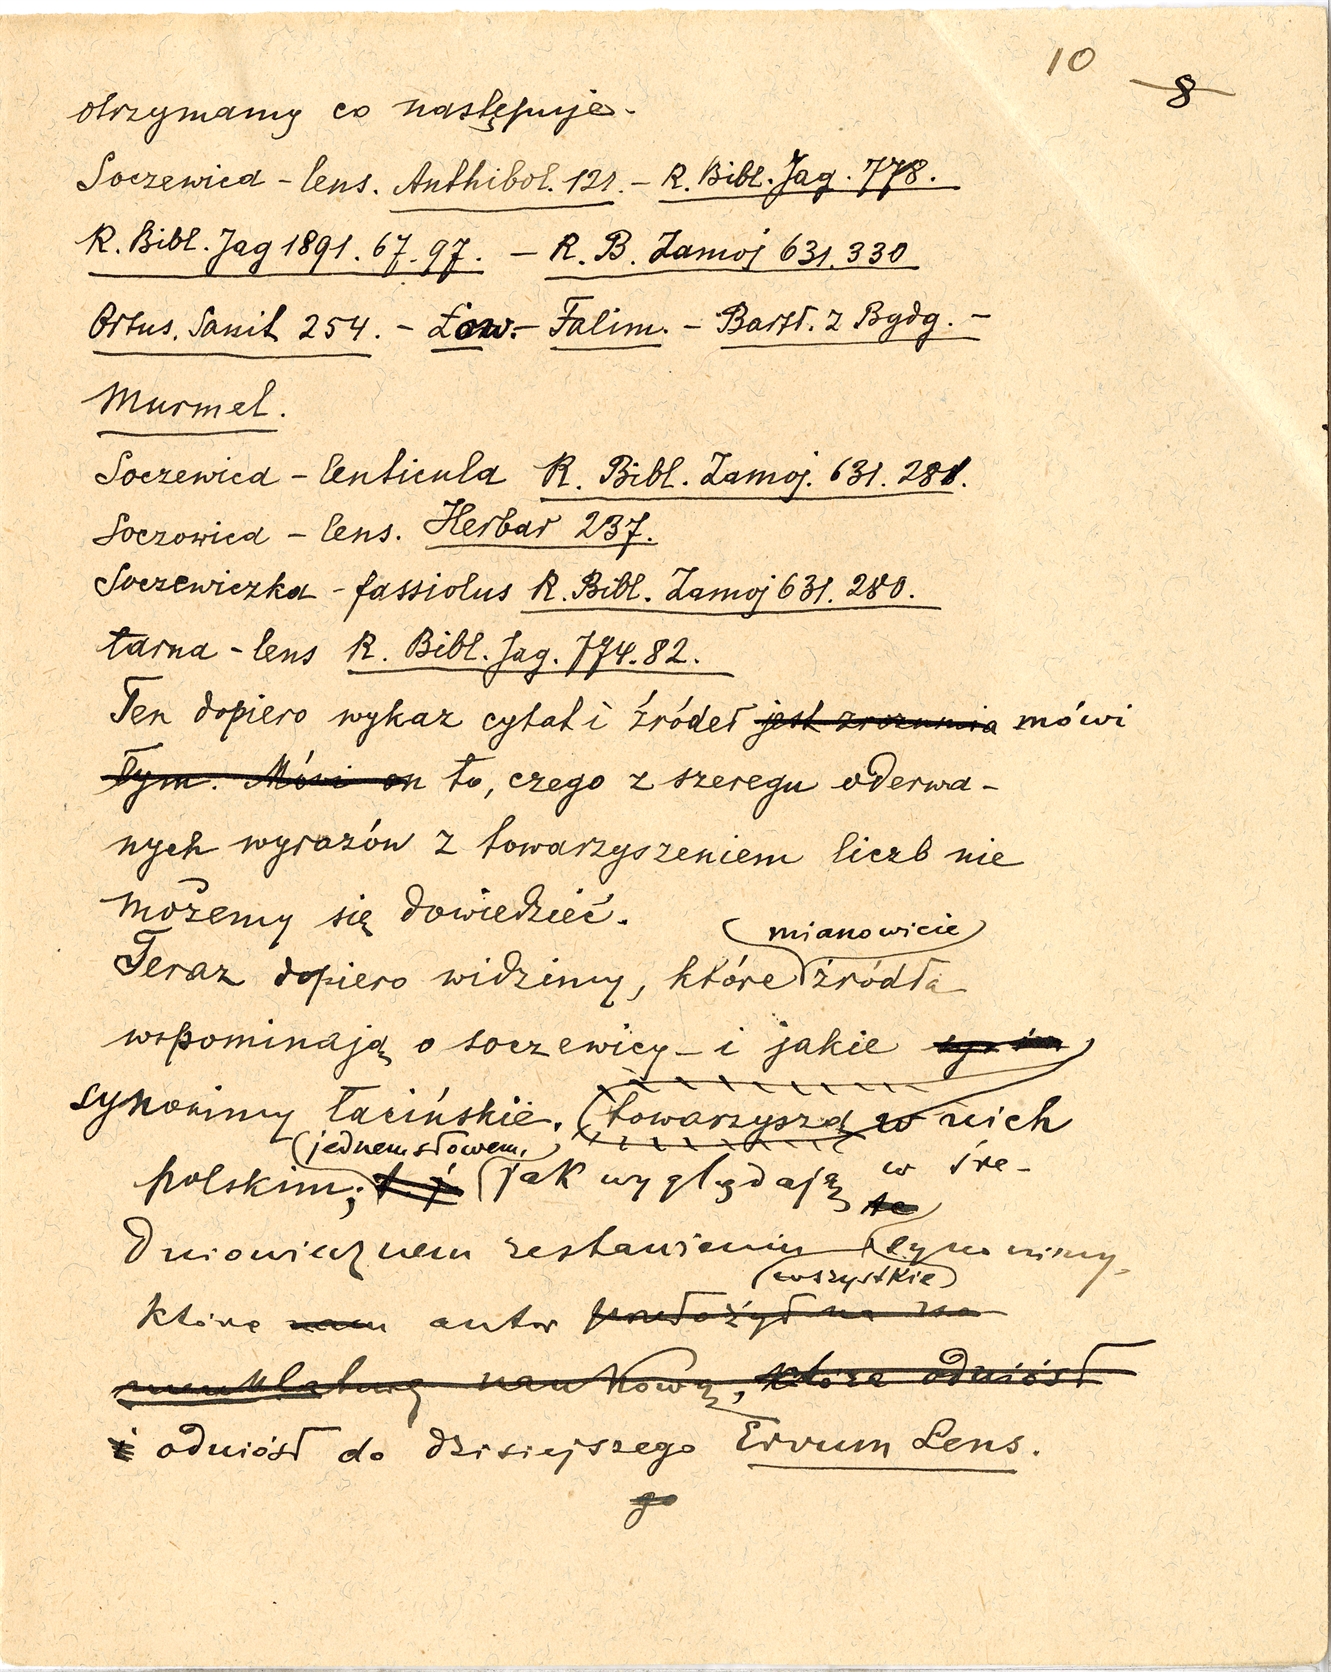 10
8
otrzymamy co następuje.
Soczewica – lens. Anthibol. 121. – R. Bibl. Jag. 778.
R. Bibl. Jag 1891. 67. 97. – R. B. Zamoj 631. 330
Ortus. Sanit 254. – Łow. – Falim. – Barth. z Bydg. –
Murmel.
Soczewica – lenticula R. Bibl. Zamoj. 631. 281.
Soczowica – lens. Herbar 237.
Soczewiczka – fassiolus R. Bibl. Zamoj 631. 280.
tarna – lens R. Bibl. Jag. 774. 82.
Ten dopiero wykaz cytat i źródeł jest zrozumia mówi
łym. Mówi on to, czego z szeregu oderwa-
nych wyrazów z towarzyszeniem liczb nie
możemy się dowiedzieć.
mianowicie
Teraz dopiero widzimy, które źródła
wspominają o soczewicy – i jakie
synonimy łacińskie. towarzyszą w nich
jednem słowem,
polskim; t. j jak wyglądają w śre-
te
dniowiecznem zestawieniu synonimy,
wszystkie
które nam autor przełożył na
menklaturę naukową, które odniósł
i odniósł do dzisiejszego Ervum Lens.
go